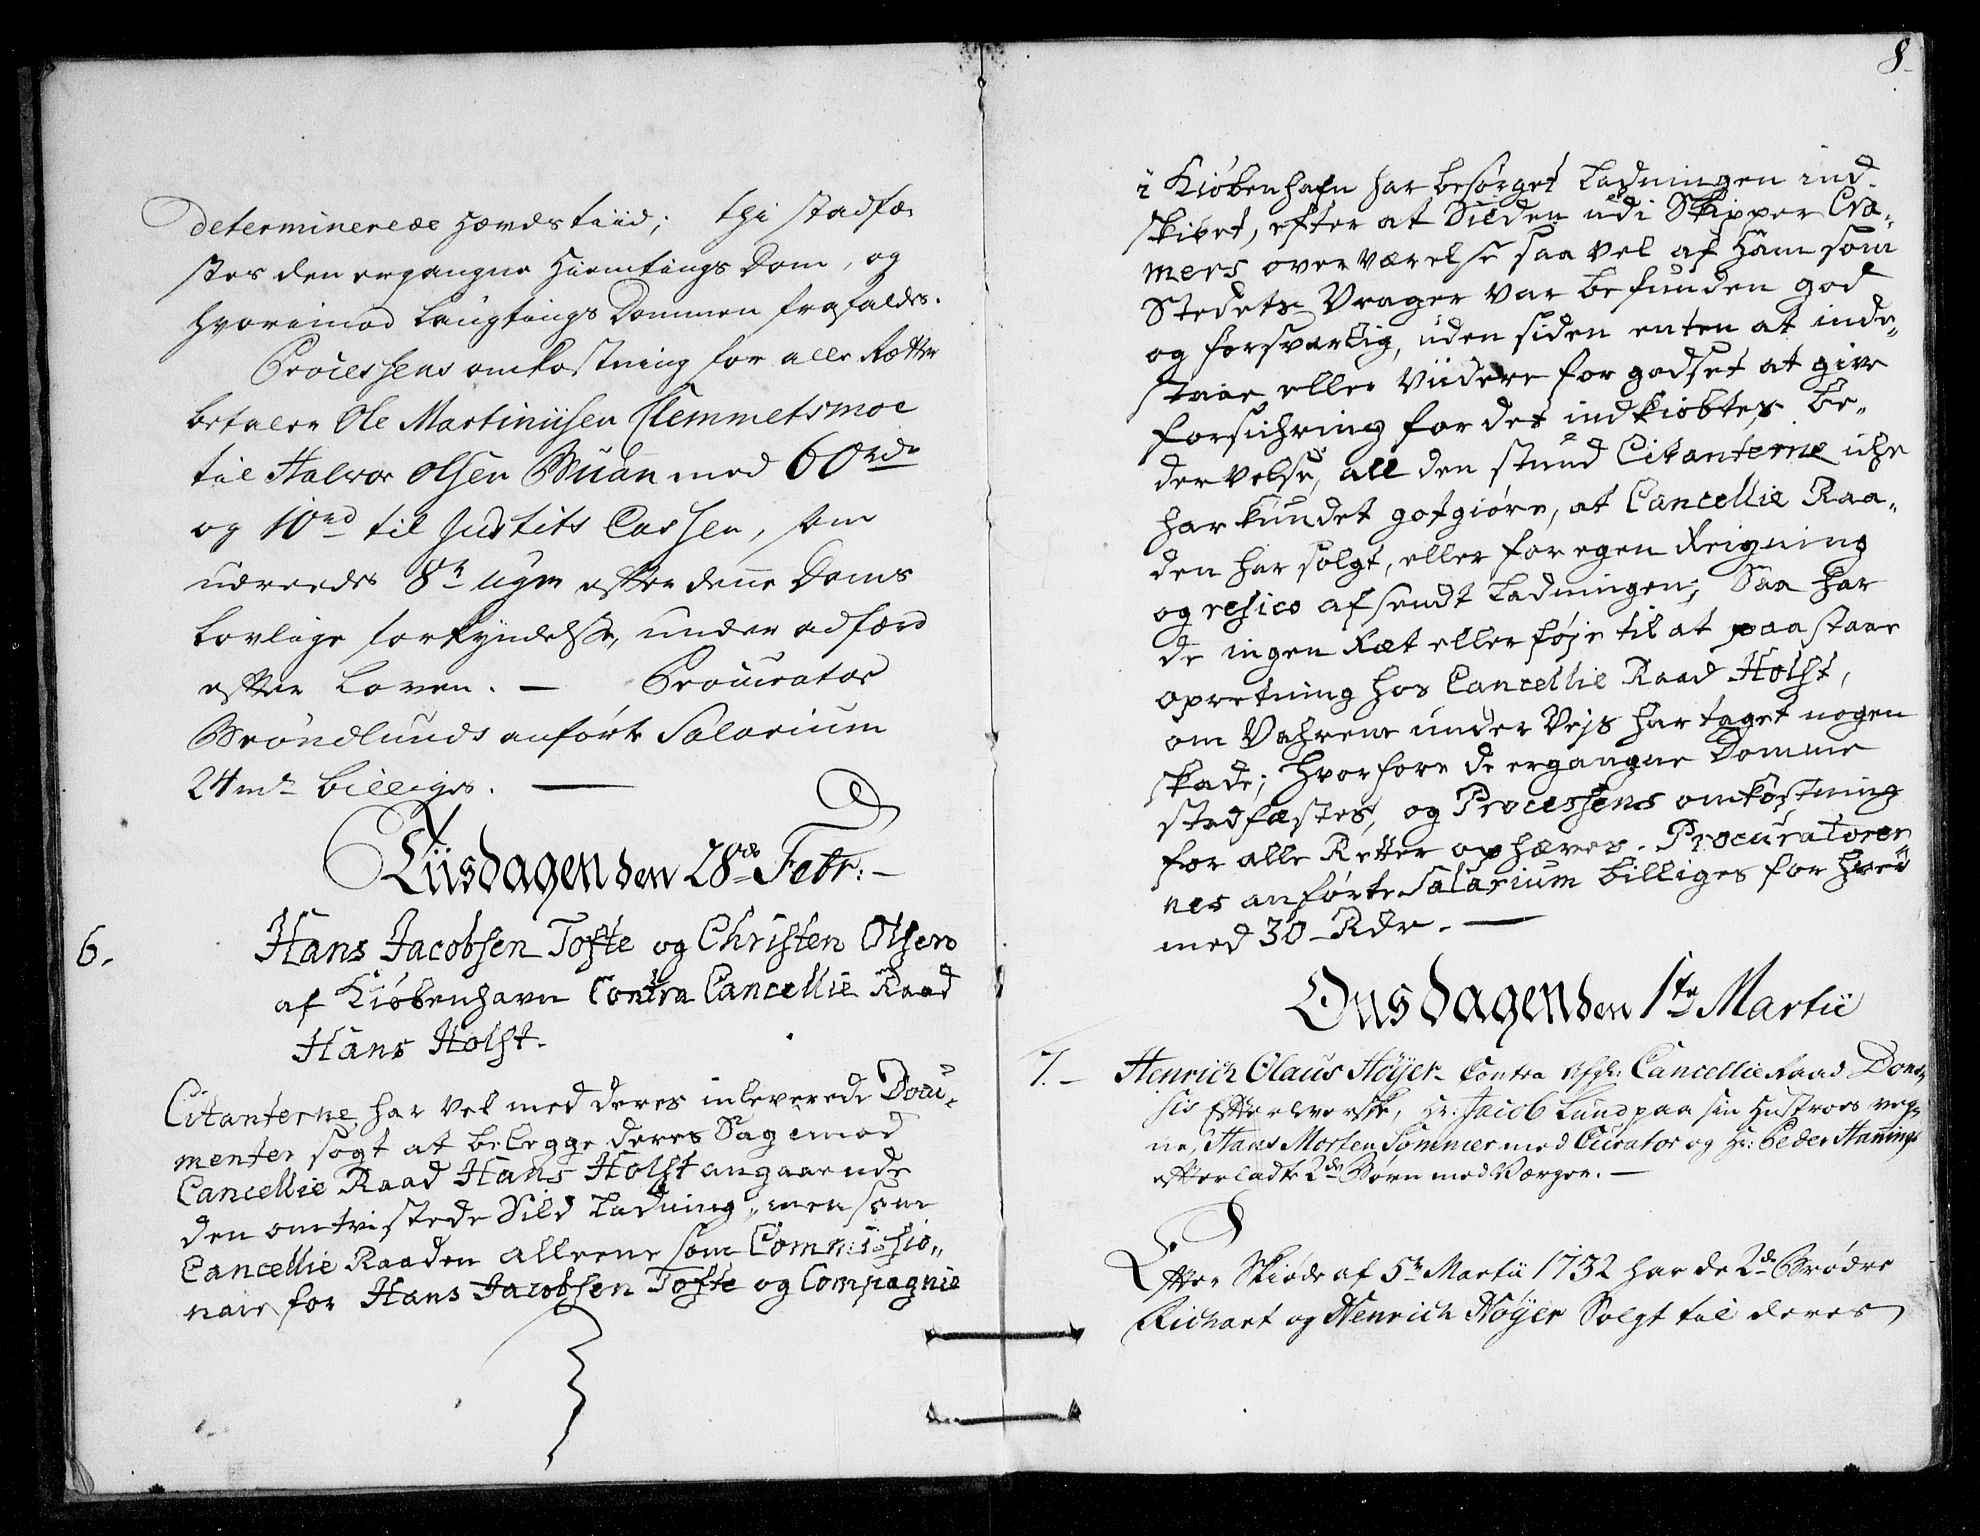 determinerede Hævds tiid; thi stadfæ¬
stes den ergangne Hiemtings Dom, og
hvorimod Laugtings Dommen frafaldes.
Processens omkostning for alle Rætter
betaler Ole Martinusen Klemmetsmoe
til Halvor Olsen Bruan med 60 rdr
og 10 rd til Justits Cassen, som
udreedes 8te Uger efter denne Doms
Lovlige forkyndelse, under adfærd
efter Loven. — Procurator
Brøndlunds anførte Salarium
24 rd billiges. —
Tiisdagen den 28de Febr: —
6.
Hans Jacobsen Tofte og Christen Olsen
af Kiøbenhavn Contra Cancellie Raad
Hans Holst.
Citanterne har vel med deres inleverede Docu¬
menter søgt at belegge deres Sag imod
Cancellie Raad Hans Holst angaaende
den omtvistede Sild Ladning, men som
Cancellie Raaden alleene som Commissio„
nair for Hans Jacobsen Tofte og Compagnie
8
i Kiøbenhafn har besørget Ladningen ind¬
skibet, efter at Silden udi Skipper Cra„
mers overværelse saa vel af Ham som
Stedets Vrager var befunden god
og forsvarlig, uden siden enten at inde„
staae eller viidere for godset at give
forsichring for det indkiøbtes be„
dervelse, all den stund Citanterne icke
har kundet gotgiøre, at Cancellie Raa„
den har solgt, eller for egen Reigning
og resico afsendt Ladningen; Saa har
de ingen Ræt eller føje til at paastaae
opretning hos Cancellie Raad Holst,
om Vahrene under Vejs har taget nogen
skade; hvorfore de ergangne Domme
stadfæstes, og Processens omkostning
for alle Retter ophæves. Procuratorer„
nes anførte Salarium billiges for hver
med 30 Rdr. —
Onsdagen den 1te Martii
7. —
Henrich Olaus Höyer Contra Afg: Cancellie Raad Dons„
sis Efterleverske, Hr: Jacob Lund paa sin Hustroes veg„
ne, Hans Morten Sommer med Curator og Hr: Peder Hannings
efterladte 2de Børn med Værger. —
Efter Skiøde af 5te Martii 1732 har de 2de Brødre
Richart og Henrich Höyer Solgt til deres